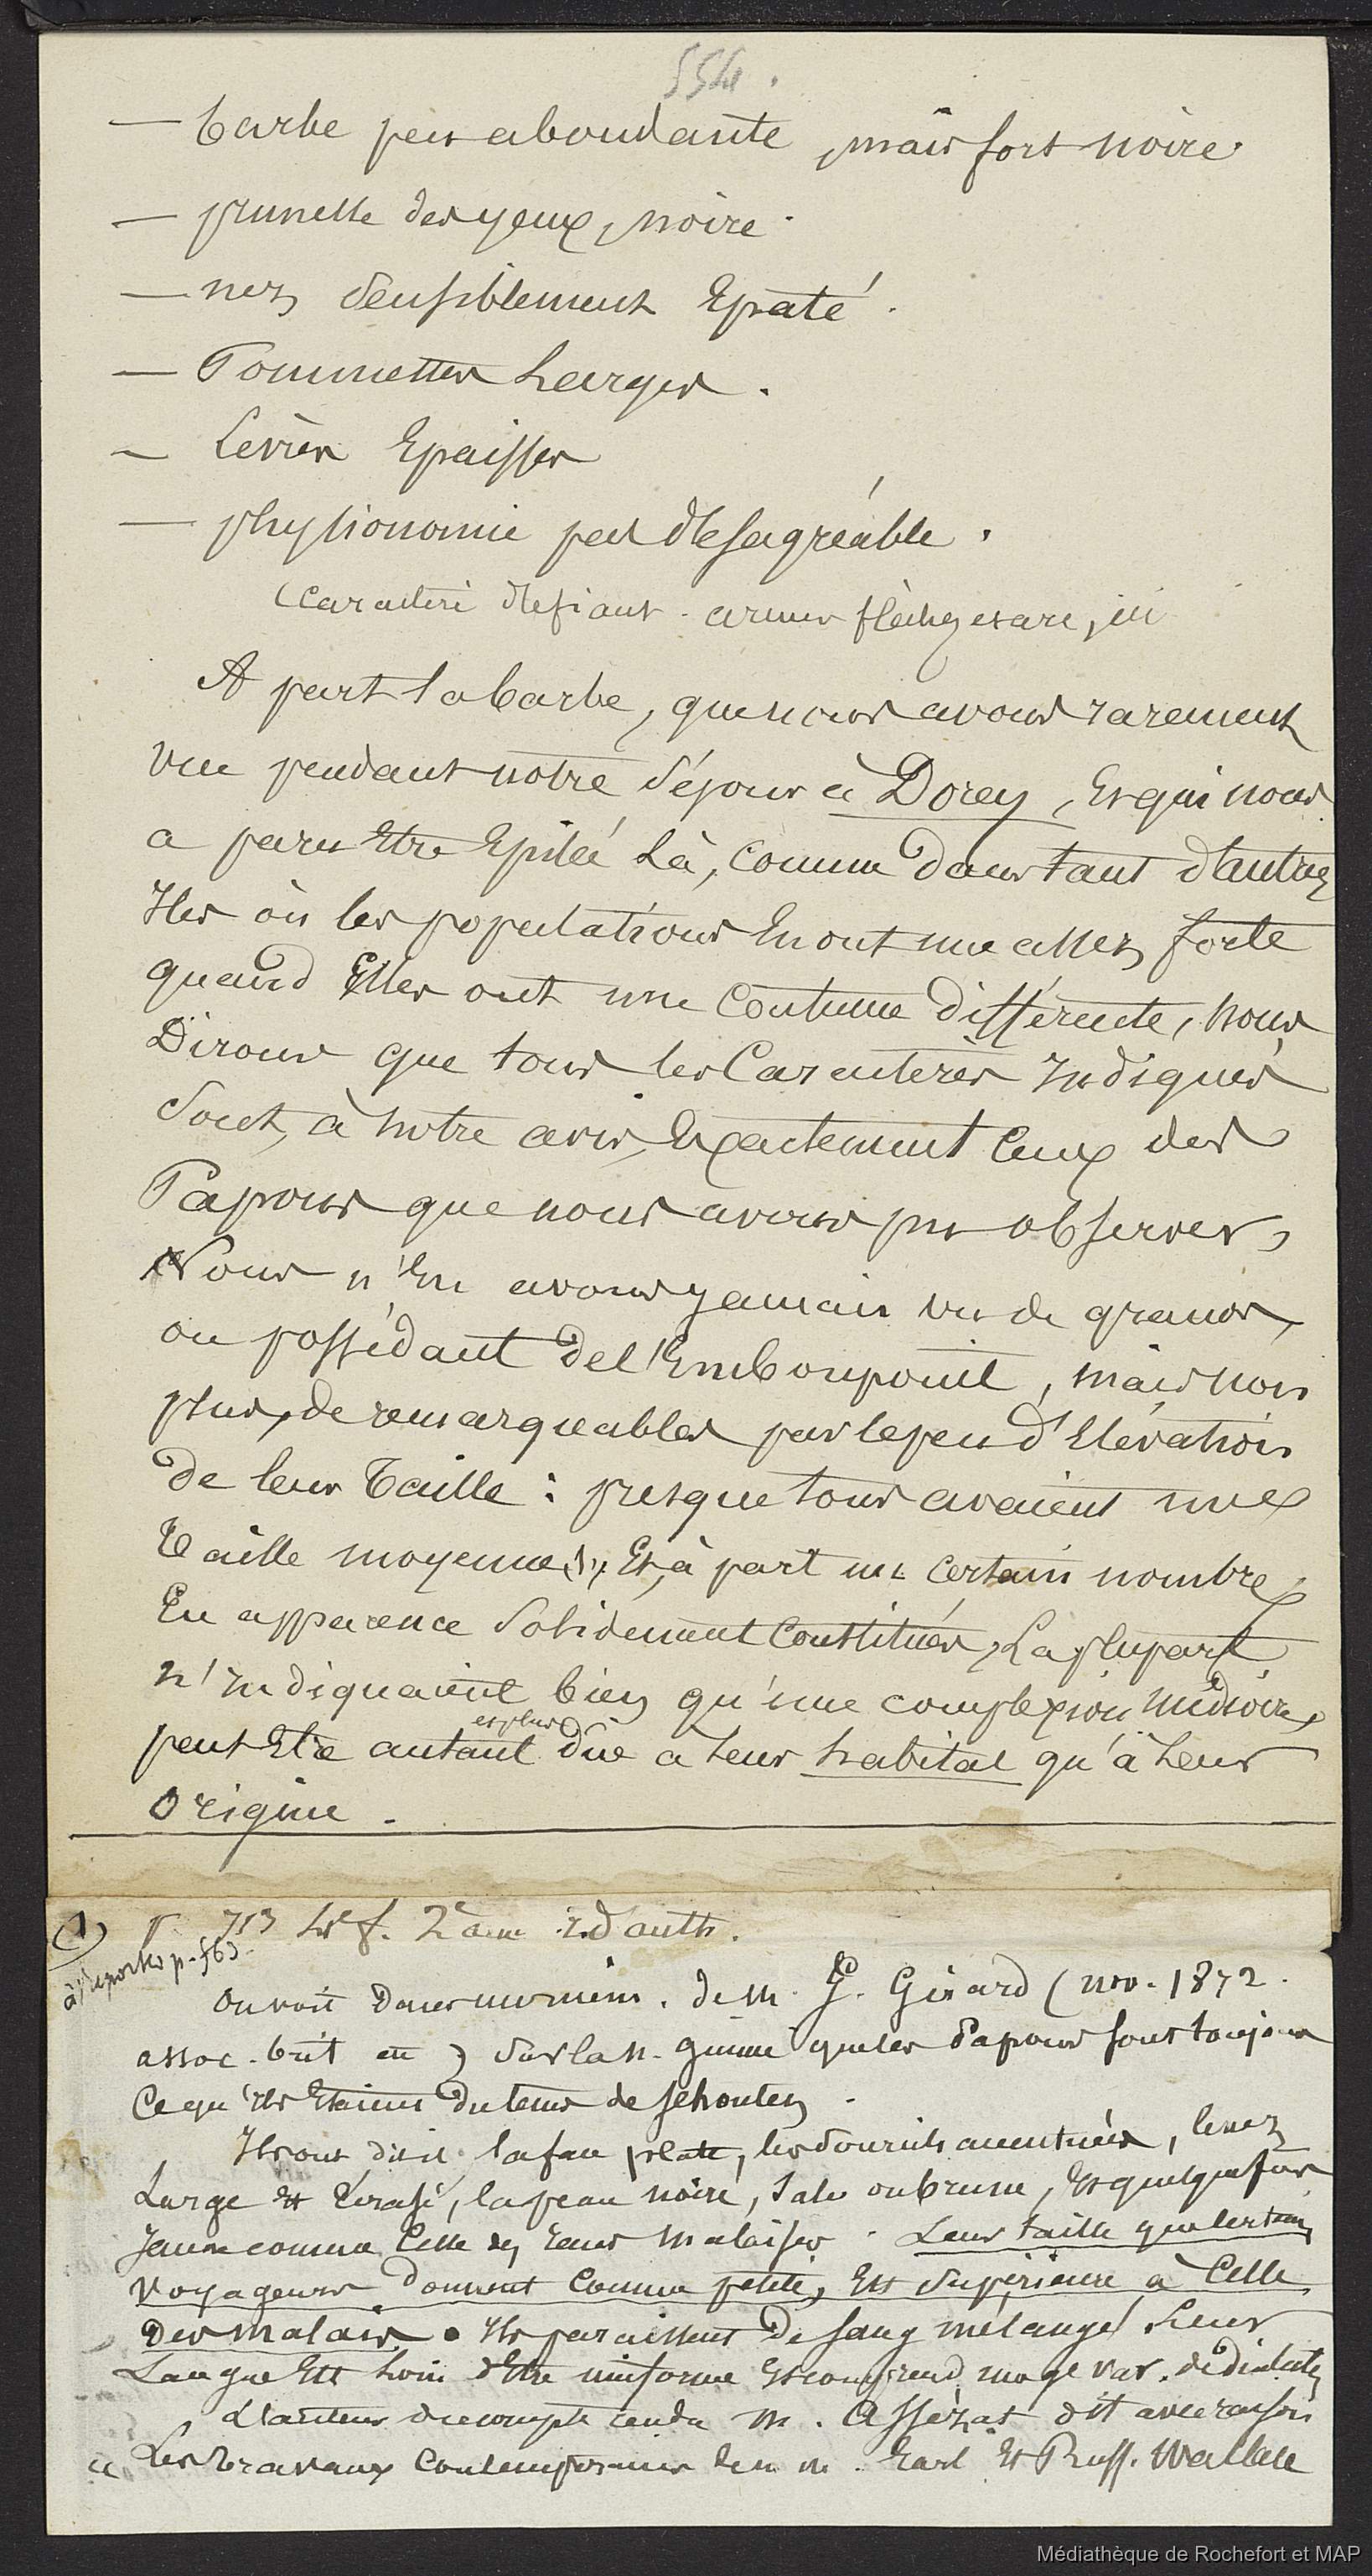 554.
— barbe peu abondante, mais fort noire
— prunelle des yeux, noire.
— nez sensiblement Epaté.
— Pommettes Larges.
— Levres Epaisses
— physionomie peu desagréable.
(Caractere defiant. armes flèches et arc,
A part la barbe, que nous avons rarement
vue pendant notre séjour à Dorey, Et qui nous
a paru Etre Epilée Là, comme dans tant d'autres
Iles où les populations En ont une assez forte
quand Elles ont une Coutume différente, nous
Dirons que tous les Caracterès Indiqués
sont, à notre avis, Exactement Ceux des
Papous que nous avons pu observer,
Nous n'En avons jamais vu de grands,
ou possédant de l'Embonpoint, mais non
plus, de remarquables par le peu d'Elévation
de leur Taille : presque tous avaient une
Taille moyenne (1), Et, à part un certain nombre
En apparence Solidement Constitués, La plupart
n'Indiquaient bien qu'une complexion médiocre
et plus
peut Etre autant dûe à leur habitat qu'à Leur
Origine.
(1) 713 2e d'auth.
à reporter p. 563
On voit Dans un mém. de M. J. Girard (nov. 1872.
assoc. brit ) Sur la n. guinée que les Papous sont toujours
Ce qu'Ils Etaient Du tems de Schouten.
Ils ont dit il la face plate, les sourcils accentués, le nez
Large Et Ecrasé, la peau noire, Sale ou brune, Et quelquefois
Jaune comme Celle des Races Malaises. Leur taille que certains
voyageurs Donnent Comme petite, Est Supérieure à Celle
Des Malais. Ils paraissent De sang mélangé. Leur
Langue Est Loin d'Etre uniforme Et comprend var. de dialectes
L'auteur du compte rendu M. Assézat dit avec raison
« Les Travaux Contemporains de M. M. Earl Et Russ. Wallace
Médiathèque de Rochefort et MAP